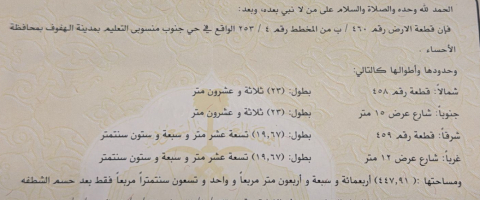 الحمد لله وحده والصلاة والسلام على من لا نبي بعده، وبعد:
فإن قطعة الارض رقم ٤٦٠ / ب من المخطط رقم ٤ / ٢٥٣ الواقع في حي جنوب منسوبى التعليم بمدينة الهفوف بمحافظة
الأحساء .
وحدودها وأطوالها كالتالي:
شمالاً: قطعة رقم ٤٥٨ بطول: (٢٣) ثلاثة و عشرون متر
جنوباً: شارع عرض ١٥ متر بطول: (٢٣) ثلاثة و عشرون متر
شرقاً: قطعة رقم ٤٥٩ بطول: (١٩,٦٧) تسعة عشر متر و سبعة و ستون سنتمتر
غرباً: شارع عرض ١٢ متر بطول: (١٩,٦٧) تسعة عشر متر و سبعة و ستون سنتمتر
ومساحتها : (٤٤٧,٩١) أربعمائة و سبعة و أربعون متر مربعاً و واحد و تسعون سنتمتراً مربعاً فقط بعد حسم الشطفه